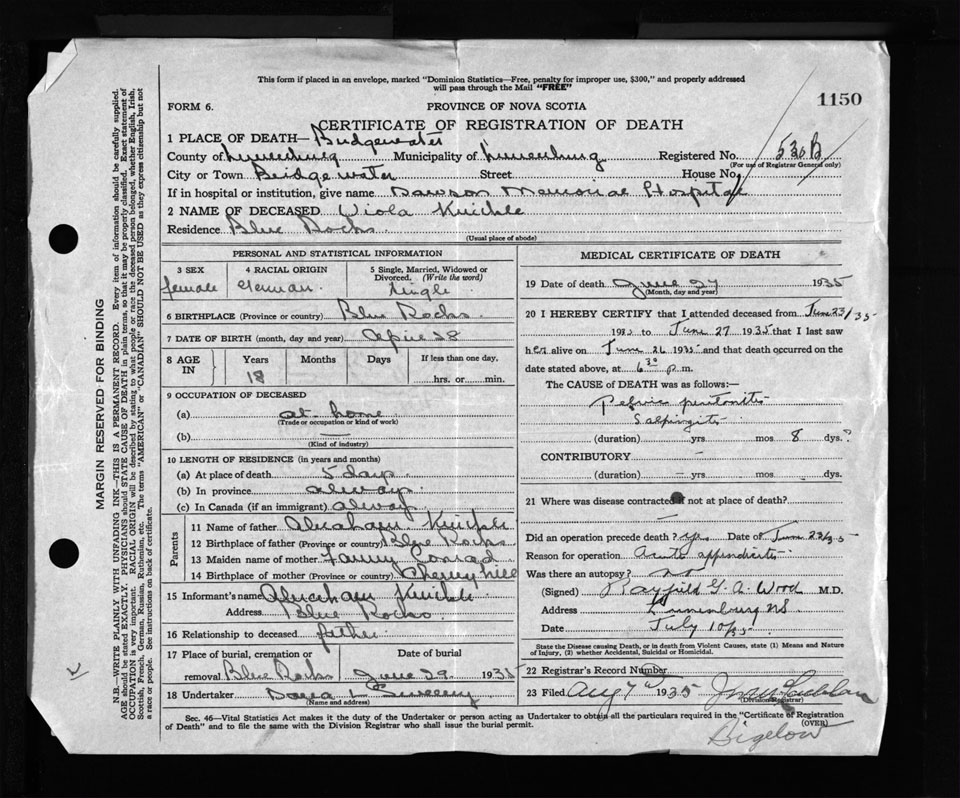 This form if placed in an envelope, marked "Dominion Statistics—Free, penalty for improper use, $300," and properly addressed
will pass through the Mail "FREE"
1150
FORM 6.
PROVINCE OF NOVA SCOTIA
CERTIFICATE OF REGISTRATION OF DEATH
1 PLACE OF DEATH— Bridgewater
County of Lunenburg Municipality of Lunenburg Registered No. 530B
(For use of Registrar General only)
City or Town Bridgewater Street House No.
If in hospital or institution, give name Dawson Memorial Hospital
2 NAME OF DECEASED Viola Knickle
Residence Blue Rocks
(Usual place of abode)
PERSONAL AND STATISTICAL INFORMATION
3 SEX female
4 RACIAL ORIGIN German
5 Single, Married, Widowed or Divorced. (Write the word) single
6 BIRTHPLACE (Province or country) Blue Rocks
7 DATE OF BIRTH (month, day and year) April 28
8 AGE IN Years Months Days If less than one day,
18 hrs. or min.
9 OCCUPATION OF DECEASED
(a) at home
(Trade or occupation or kind of work)
(b) —
(Kind of industry)
10 LENGTH OF RESIDENCE (in years and months)
(a) At place of death 5 days
(b) In province always
(c) In Canada (if an immigrant) always
Parents
11 Name of father Abraham Knickle
12 Birthplace of father (Province or country) Blue Rocks
13 Maiden name of mother Fanny Conrad
14 Birthplace of mother (Province or country) Cherry Hill
15 Informant's name Abraham Knickle
Address Blue Rocks
16 Relationship to deceased father
17 Place of burial, cremation or removal Blue Rocks Date of burial June 29 1935
18 Undertaker Sweeny
(Name and address)
MEDICAL CERTIFICATE OF DEATH
19 Date of death June 27 1935
(Month, day and year)
20 I HEREBY CERTIFY that I attended deceased from June 23/35
1935 to June 27 1935 that I last saw
her alive on June 26 1935 and that death occurred on the
date stated above, at 6 30 p m.
The CAUSE of DEATH was as follows:—
Pelvic peritonitis
Salpingitis
(duration) yrs. mos 8 dys.?
CONTRIBUTORY —
(duration) — yrs. mos dys.
21 Where was disease contracted if not at place of death?
—
Did an operation precede death? yes Date of June 22/35
Reason for operation Acute appendicitis
Was there an autopsy? no
(Signed) Rayfield G. A. Wood M.D.
Address Lunenburg NS
Date July 10/35
State the Disease causing Death, or in death from Violent Causes, state (1) Means and Nature
of Injury, (2) whether Accidental, Suicidal or Homicidal.
22 Registrar's Record Number
23 Filed Aug 7th 1935
(Division Registrar)
Sec. 46—Vital Statistics Act makes it the duty of the Undertaker or person acting as Undertaker to obtain all the particulars required in the "Certificate of Registration
of Death" and to file the same with the Division Registrar who shall issue the burial permit.
(OVER)
Bigelow
MARGIN RESERVED FOR BINDING
N.B.—WRITE PLAINLY WITH UNFADING INK—THIS IS A PERMANENT RECORD. Every item of information should be carefully supplied.
AGE should be stated EXACTLY. PHYSICIANS should STATE CAUSE OF DEATH in plain terms, so that it may be properly classified. Exact statement of
OCCUPATION is very important. RACIAL ORIGIN will be described by stating to what people or race the deceased person belonged, whether English, Irish,
Scotish, French, German, Russian, Ruthenian, etc. The terms "AMERICAN" or "CANADIAN" SHOULD NOT BE USED as they express citizenship but not
a race or people. See instructions on back of certificate.